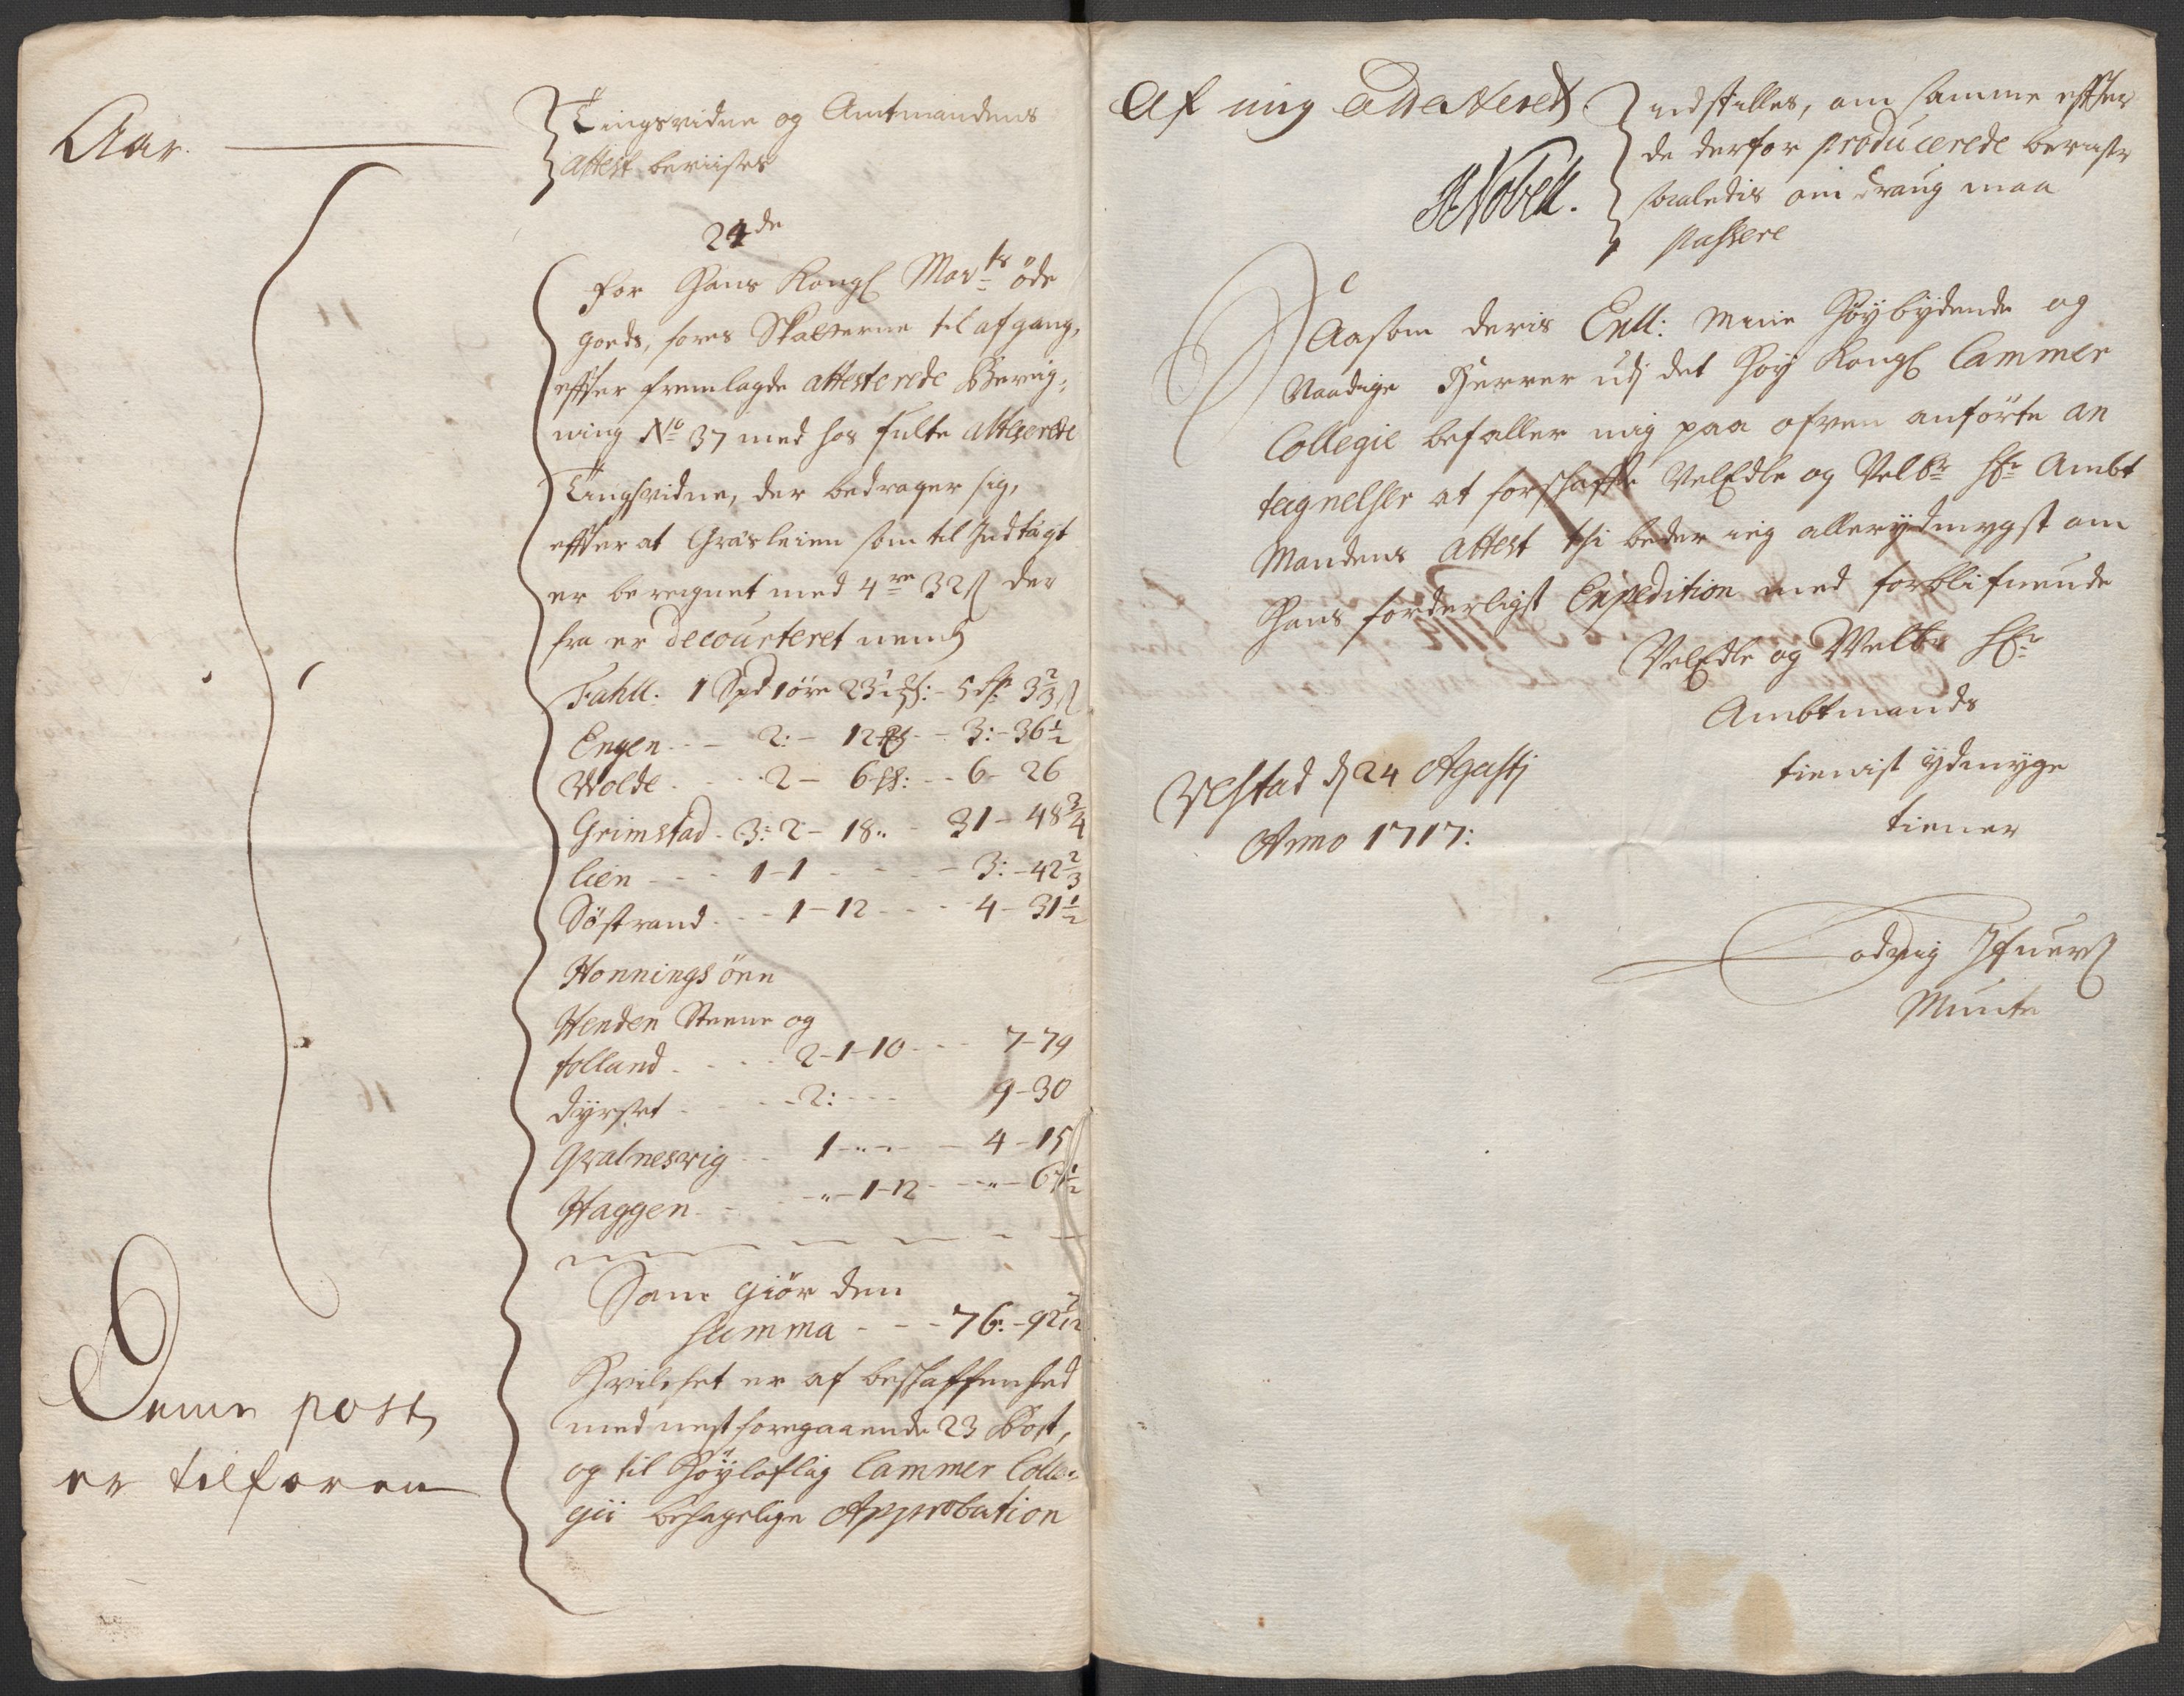 Aar.
Tingsvidne og Amtmandens
attest beviises
24de
For Hans Kongl Mayts öde
goeds, fores Skatterne til afgang,
effter fremlagde attesterede Bereig,,
ning No 37 med hos fulte attesterede
Tingsvidne, der bedrager sig,
effter at Græsleien som til Indtægt
er beregnet med 4 32 ß der
fra er decourteret neml
1 Spd 1 öre 23 5 3 2/3 ß
Engen - - 2: - 12 - - 3: - 36 1/2
Wolde - - 2 - 6 - - 6 - 26
Grimstad - 3: 2 - 18 - 31 - 48 3/4
lien - - - 1 - 1 - - - 3: - 42 2/3
Söstrand - - - 1 - 12 - - - 4 - 31 1/2
Honningsöen
Henden Steene og
folland - - - 2 - 1 - 10 - - - 7 - 79
dyrset - - - 2: - - - 9 - 30
Qvalnesvig - - 1 - - - 4 - 15
Haggen - - " - 1 - 12 - - " - 67 1/2
Som giör den
Summa - - - 76: - 92 7/12
Hvilchet er af beschaffenhed
med nest foregaaende 23 Post,
og til Höyloflig Cammer Colle-
gii behagelige Approbation
Denne post
er tilforen
Af mig atesteret
HNobell.
indstilles, om samme effter
de derfor producerede beviser
saaledis om draug maa
passere
Saasom deris Exll: mine Höybydende og
Naadige Herrer udj det Höy Kongl Cammer
Collegie befaller mig paa ofven anförte an
teignelser at forschaffe VelEdle og Velbr Hr Ambt
Mandens attest thi beder ieg allerydmygst om
Hans forderligst Expedition med forblifuende
VelEdle og Welbr Hr
Ambtmands
tienist ydmyge
tiener
d 24 Agustj
Anno 1717:
Lodvig Ifuers
Munte